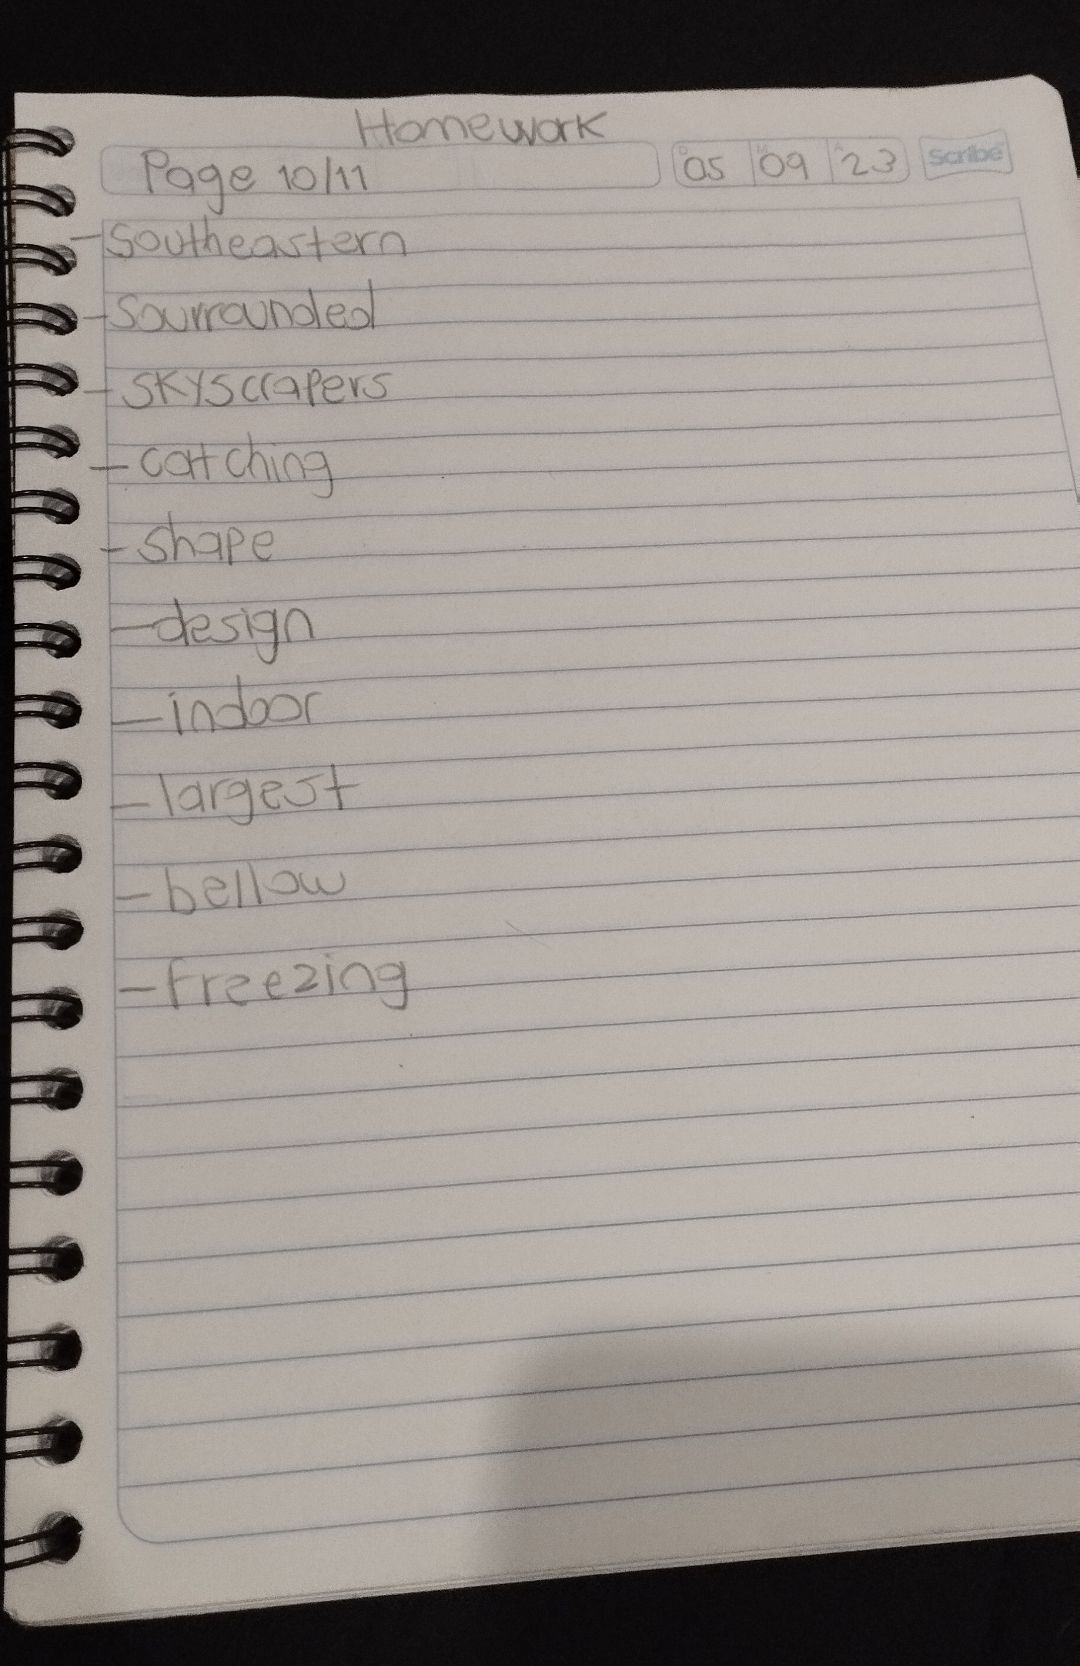 Homework
Page 10/11 05 09 23 Scribe
- Southeastern
- Sourrounded
- SKYscrapers
- catching
- shape
- design
- indoor
- largest
- bellow
- freezing